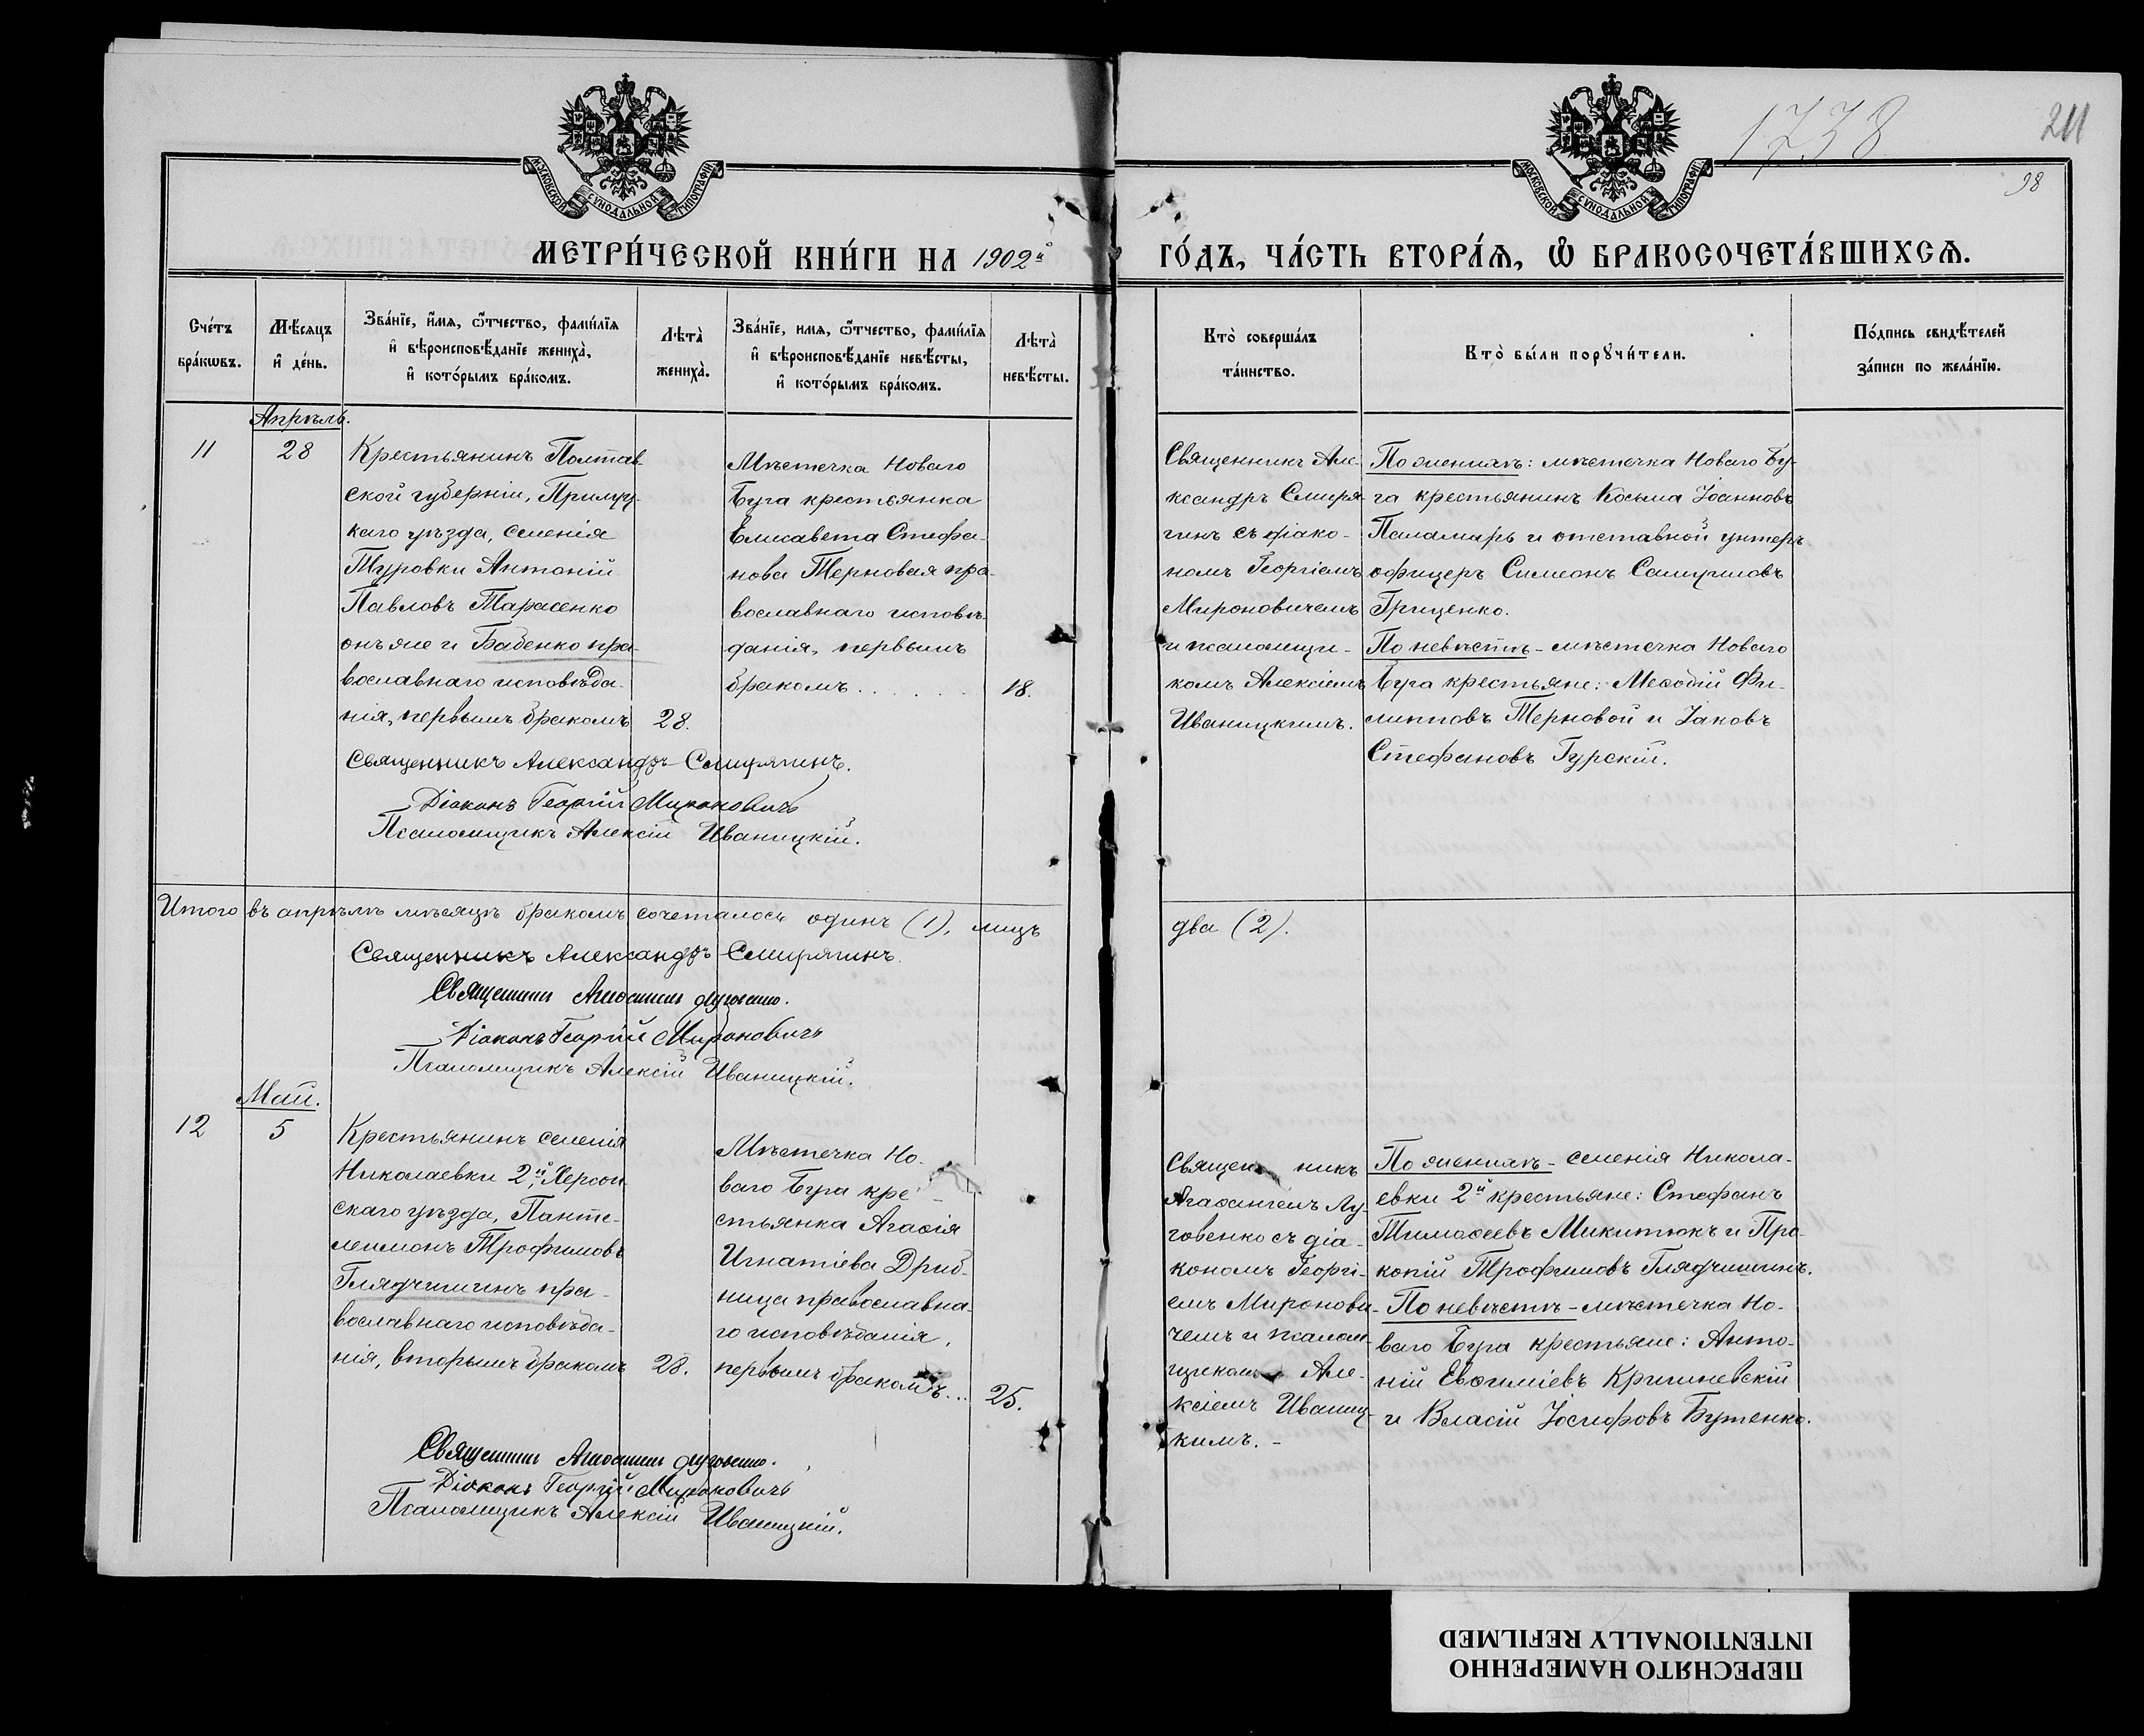 1738
211
98
МОСКОВСКОЙ СУНОДАЛЬНОЙ ТИПОГРАФІИ
МОСКОВСКОЙ СУНОДАЛЬНОЙ ТИПОГРАФІИ
МЕТРИ́ЧЕСКОЙ КНИ́ГИ НА 1902й
ГО́ДЪ, ЧА́СТЬ ВТОРА́Ѧ, Ѡ БРАКОСОЧЕТА́ВШИХСѦ.
Сче́тъ
бра́кѡвъ.
Мѣ́сяцъ
и҆ де́нь.
Зва́нїе, и҆́мя, ѻ҆́тчество, фами́лїя
и҆ вѣроисповѣ́данїе жениха̀,
и҆ кото́рымъ бра́комъ.
Лѣта̀
жениха̀.
Зва́нїе, имя, ѻ҆́тчество, фами́лїя
и҆ вѣроисповѣ́данїе невѣ́сты,
и҆ кото́рымъ бра́комъ.
Лѣта̀
невѣ́сты.
Кто̀ соверша́лъ
та́инство.
Кто̀ бы́ли порꙋчи́тели.
По́дпись свидѣ́телей
за́писи по жела́нїю.
Апрѣль.
11
28
Крестьянинъ Полтав-
ской губерніи, Прилуц-
каго уѣзда, селенія
Туровки Антоній
Павловъ Тарасенко
онъ же и Бабенко пра-
вославнаго исповѣда-
нія, первымъ бракомъ
28.
Мѣстечка Новаго
Буга крестьянка
Елисавета Стефа-
нова Терновая пра-
вославнаго исповѣ-
данія, первымъ
бракомъ . . . . . .
18.
Священникъ Але-
ксандръ Смиря-
гинъ съ діако-
номъ Георгіемъ
Мироновичемъ
и псаломщи-
комъ Алексіемъ
Иваницкимъ.
По женихѣ: мѣстечка Новаго Бу-
га крестьянинъ Косьма Іоанновъ
Паламарь и отставной унтеръ
офицеръ Симеонъ Самуиловъ
Гриценко.
По невѣстѣ - мѣстечка Новаго
Буга крестьяне: Меѳодій Фи-
липповъ Терновой и Іаковъ
Стефановъ Гурскій.
Священникъ Александръ Смирягинъ.
Діаконъ Георгій Мироновичъ
Псаломщикъ Алексій Иваницкій.
Итого въ апрѣлѣ мѣсяцѣ бракомъ сочеталось одинъ (1), лицъ два (2).
Священникъ Александръ Смирягинъ.
Священникъ Агаѳангелъ Луговенко.
Діаконъ Георгій Мироновичъ
Псаломщикъ Алексій Иваницкій.
Май.
12
5
Крестьянинъ селенія
Николаевки 2й, Херсон-
скаго уѣзда, Панте-
леимонъ Трофимовъ
Глядчишинъ пра-
вославнаго исповѣда-
нія, вторымъ бракомъ
28.
Мѣстечка Но-
ваго Буга кре-
стьянка Агаѳія
Игнатіева Дриб-
ница православна-
го исповѣданія,
первымъ бракомъ...
25.
Священникъ
Агаѳангелъ Лу-
говенко съ діа-
кономъ Георгі-
емъ Миронови-
чемъ и псалом-
щикомъ Але-
ксіемъ Иваниц-
кимъ. -
По женихѣ - селенія Никола-
евки 2й крестьяне: Стефанъ
Тимоѳеевъ Микитюкъ и Про-
копій Трофимовъ Глядчишинъ.
По невѣстѣ - мѣстечка Но-
ваго Буга крестьяне: Анто-
ній Евѳиміевъ Кришневскій
и Власій Іосифовъ Бутенко.
Священникъ Агаѳангелъ Луговенко.
Діаконъ Георгій Мироновичъ
Псаломщикъ Алексій Иваницкій.
ПЕРЕСНЯТО НАМЕРЕННО
INTENTIONALLY REFILMED